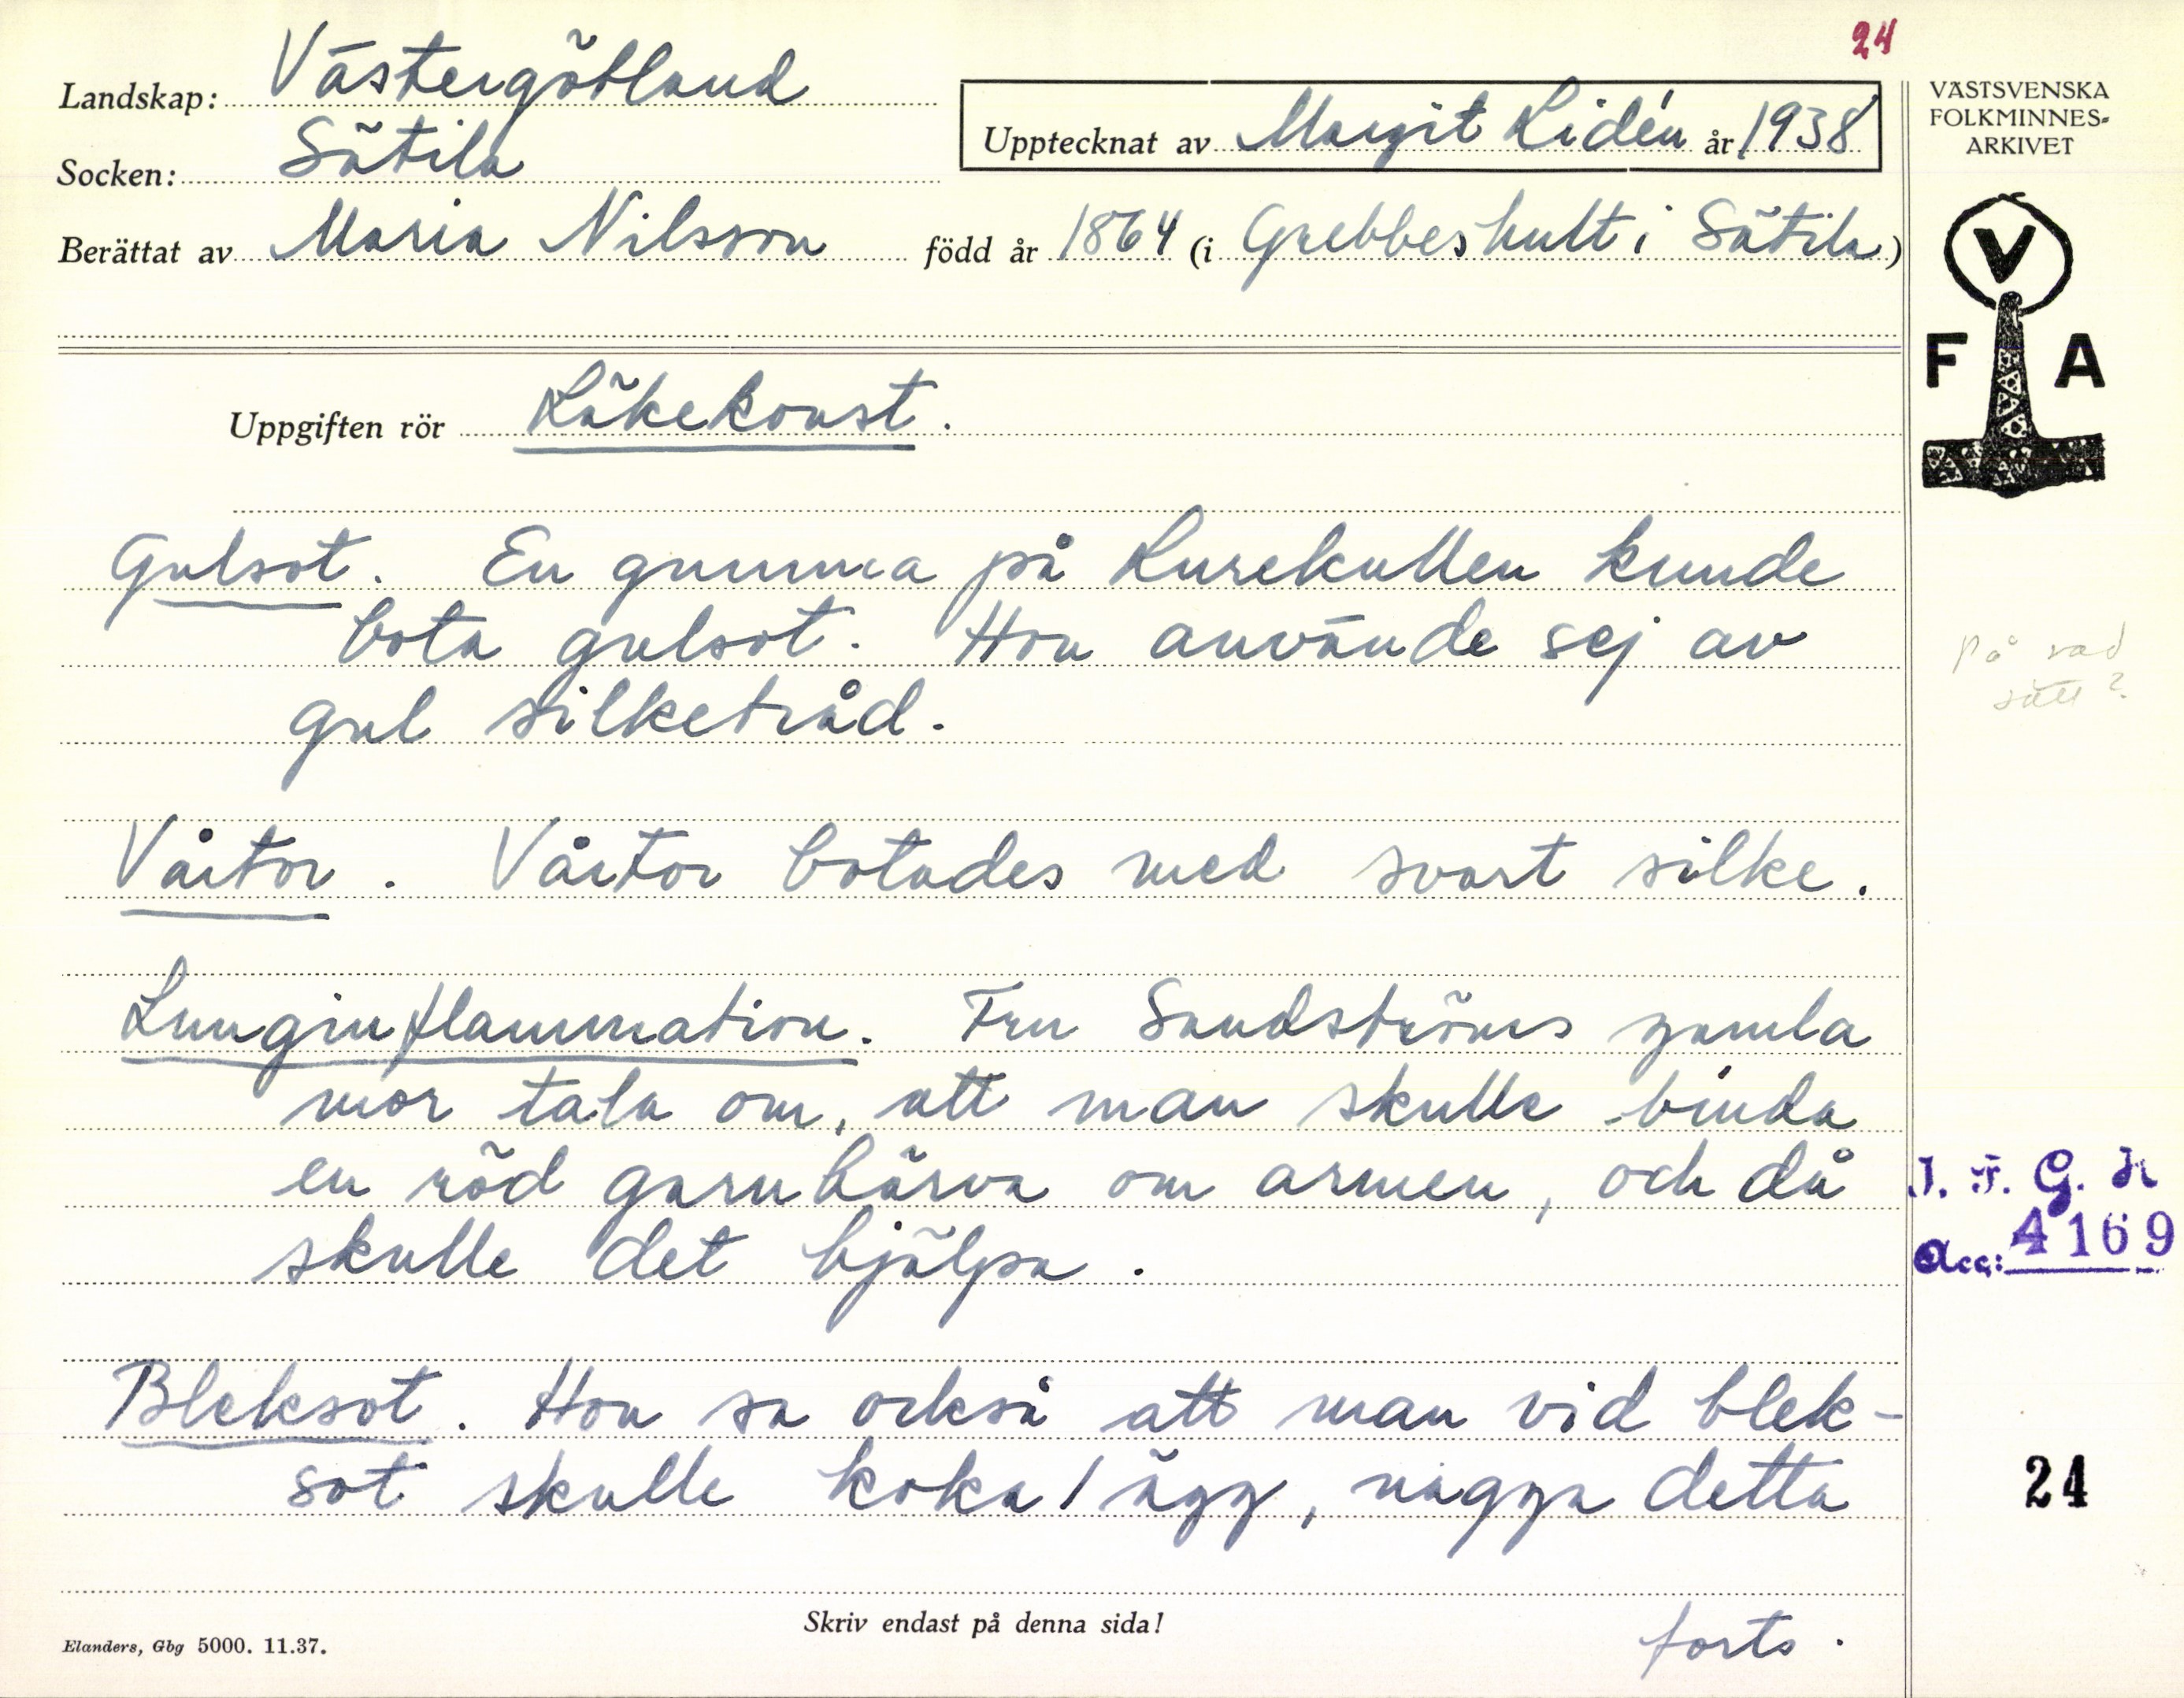 24
Landskap: Västergötland
Socken: Sätila
Upptecknat av Margit Lidén år 1938
Berättat av Maria Nilsson född år 1864 (i Grebbeshult i Sätila)
Uppgiften rör Läkekonst.
Gulsot. En gumma på Kurekullen kunde
bota gulsot. Hon använde sej av
gul silketråd.
Vårtor. Vårtor botades med svart silke.
Lunginflammation. Fru Sandströms gamla
mor tala om, att man skulle binda
en röd garnhärva om armen, och då
skulle det hjälpa.
Bleksot. Hon sa också att man vid blek-
sot skulle koka 1 ägg, nagga detta
forts.
Skriv endast på denna sida!
Elanders, Gbg 5000. 11.37.
VÄSTSVENSKA
FOLKMINNES-
ARKIVET
V
F A
på vad
sätt?
I. F. G. H
Acc: 4169
24